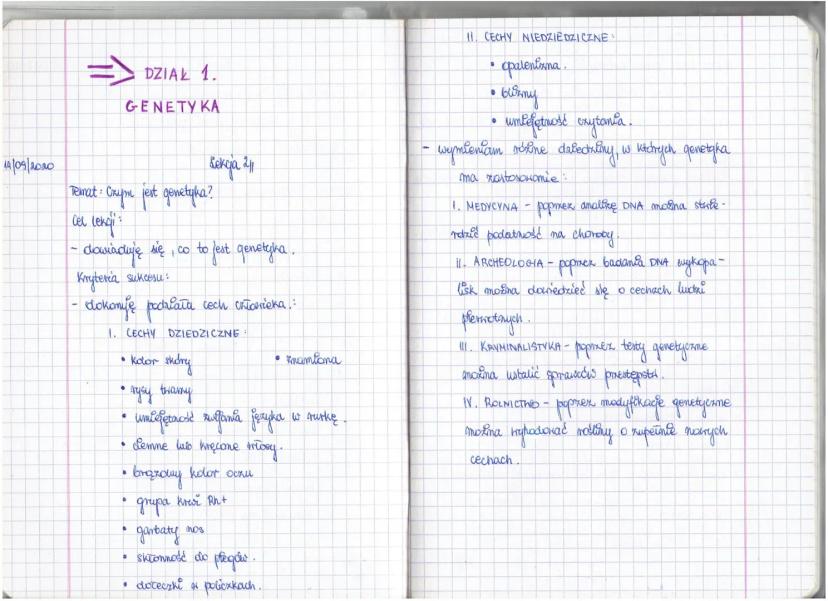 ⇒ DZIAŁ 1.
GENETYKA
14/09/2020 Lekcja 2
Temat: Czym jest genetyka?
Cel lekcji:
- dowiaduję się, co to jest genetyka.
Kryteria sukcesu:
- dokonuję podziału cech człowieka.:
I. CECHY DZIEDZICZNE:
• kolor skóry • znamiona
• rysy twarzy
• umiejętność zwijania języka w rurkę.
• ciemne lub kręcone włosy.
• brązowy kolor oczu
• grupa krwi Rh+
• garbaty nos
• skłonność do piegów.
• dołeczki w policzkach.
II. CECHY NIEDZIEDZICZNE:
• opalenizna.
• blizny
• umiejętność czytania.
- wymieniam różne dziedziny, w których genetyka
ma zastosowanie:
I. MEDYCYNA - poprzez analizę DNA można stwie-
rdzić podatność na choroby.
II. ARCHEOLOGIA - poprzez badania DNA wykopa-
lisk można dowiedzieć się o cechach ludzi
pierwotnych.
III. KRYMINALISTYKA - poprzez testy genetyczne
można ustalić sprawców przestępstw.
IV. ROLNICTWO - poprzez modyfikacje genetyczne
można wyhodować rośliny o zupełnie nowych
cechach.